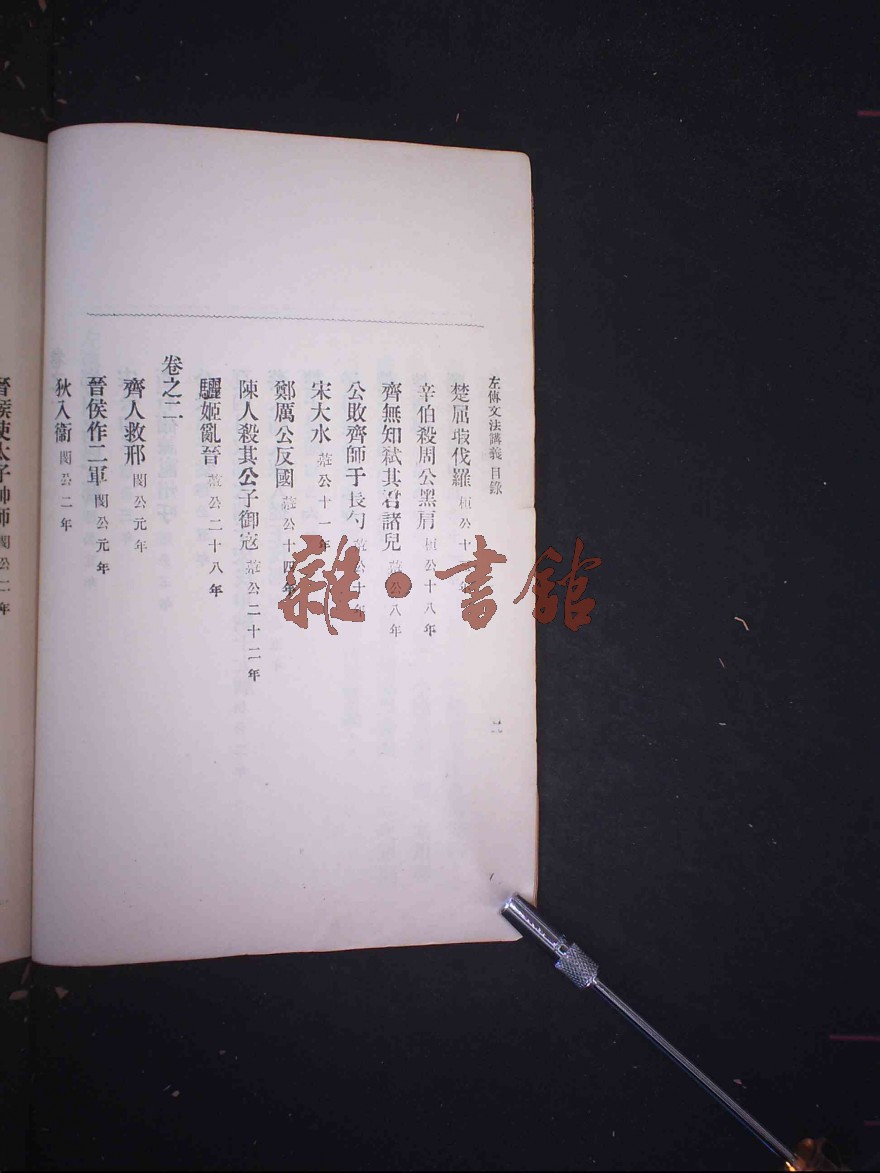 左傳文法講義 目錄
二
楚屈瑕伐羅 桓公十 年
辛伯殺周公黑肩 桓公十八年
齊無知弒其君諸兒 莊公八年
公敗齊師于長勺 莊公十年
宋大水 莊公十一年
鄭厲公反國 莊公十四年
陳人殺其公子御寇 莊公二十二年
驪姬亂晉 莊公二十八年
卷之二
齊人救邢 閔公元年
晉侯作二軍 閔公元年
狄入衞 閔公二年
晉侯使太子帥師 閔公二年
雜·書館